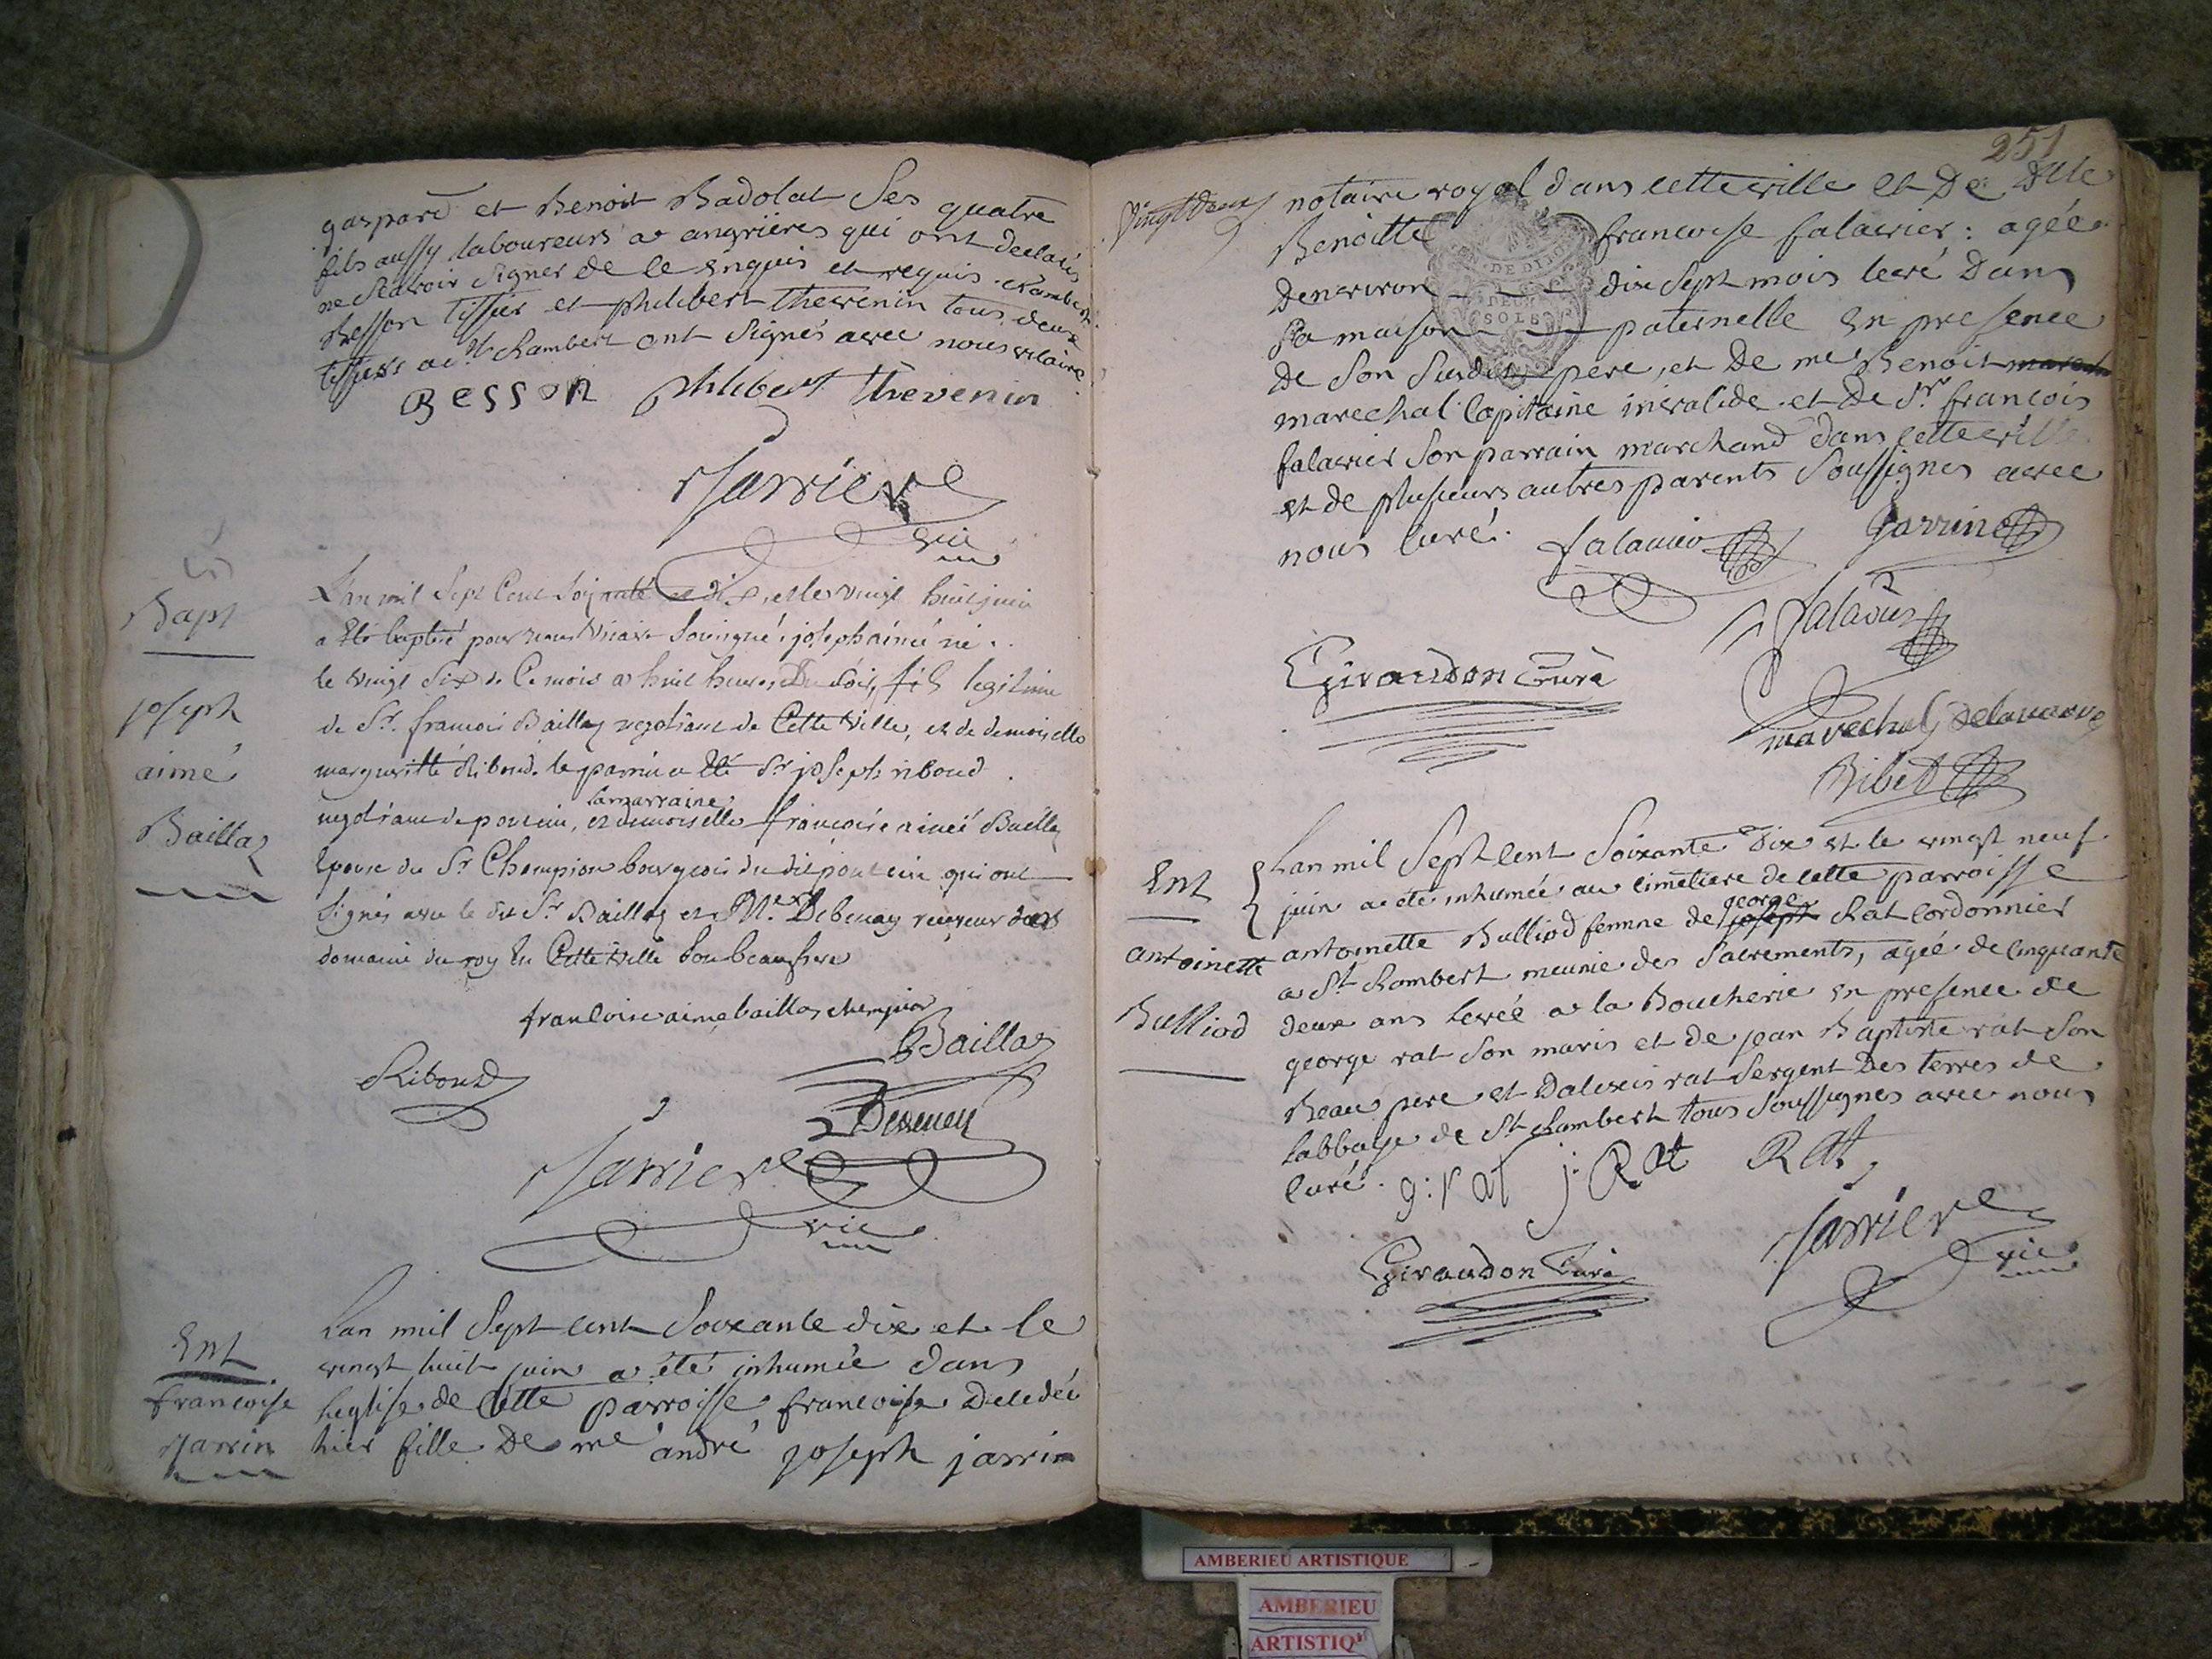 gaspard et Benoit Badolat Ses quatre
fils aussy laboureurs a angrières qui ont declarés
ne Scavoir signer de ce enquis et requis rambert
Besson tissier et philibert thevenin tous deux
tissiers a St Rambert ont Signés avec nous vicaire
BESSON philibert thevenin
Jarriere
vic
Bapt
joseph
aimé
Baillaz
L'an mil Sept Cent Soixante et dix, et le vingt huit juin
a été baptisé par nous vicaire soussigné joseph aimé né
le vingt Six de Ce mois a huit heures Du Soir, fils legitime
de Sr. francois Baillaz negotiant de Cette ville, et de demoiselle
margueritte Riboud. le parrain a été Sr joseph riboud
negotiant de poncin, et la marraine demoiselle francoise aimeé Baillaz
Epouse du Sr Champion bourgeois du dit poncin qui ont
Signés avec le dit Sr Baillaz et Me Debeney receveur des
domaine du roy En Cette ville Son beaufrere
francoise aime baillaz champion
Baillaz
Riboud
Debeney
Jarriere
vic
Ent
francoise
Jarrin
Lan mil Sept cent Soixante dix et le
vingt huit juin a été inhumée dans
leglise de Cette parroisse francoise Decedée
hier fille De me andré joseph jarrin
251
vingt deux
notaire royal dans cette ville et De Dlle
Benoitte francoise falavier: agée
Denviron dix Sept mois levé Dans
Sa maison paternelle en presence
de Son Susdit pere, et De me Benoit marech
marechal Capitaine invalide et De Sr francois
falavier Son parrain marchand dans cette ville
et de plusieurs autres parents Soussignes avec
nous curé.
GEN. DE DIJON
DEUX
SOLS
falavier
Jarrin
falavier
Giraudon Curé
marechal Delavarove
Ribet
Ent
antoinette
Bulliod
Lan mil Sept cent Soixante Dix et le vingt neuf
juin a été inhumée au cimetiere de cette parroisse
antoinette Bulliod femme de joseph george Rat Cordonnier
a St Rambert meunie des Sacrements, ageé de cinquante
deux ans levée a la Boucherie en presence de
george rat Son maris et de jean Baptiste rat Son
Beau pere et Dalexis rat Sergent Des terres de
labbaye de St Rambert tous Soussignes avec nous
Curé.
g: rat j: Rat Rat
Jarriere
vic
Giraudon Curé
AMBERIEU ARTISTIQUE
AMBERIEU
ARTISTIQ